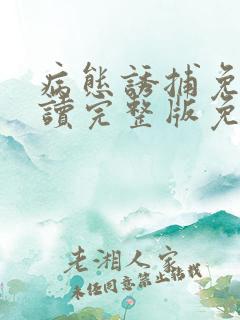 病態誘捕免
讀完整版免
老湘人家
未任同意禁止转载